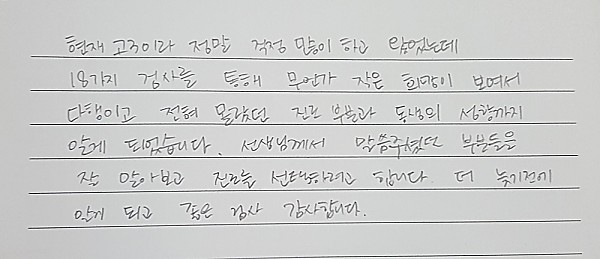 현재 고3이라 정말 걱정 많이 하고 왔었는데
18가지 검사를 통해 무언가 작은 희망이 보여서
다행이고 전혀 몰랐던 진로 부분과 동생의 성향까지
알게 되었습니다. 선생님께서 말씀주셨던 부분들을
잘 알아보고 진로를 선택하려고 합니다. 더 늦기전에
알게 되고 좋은 검사 감사합니다.